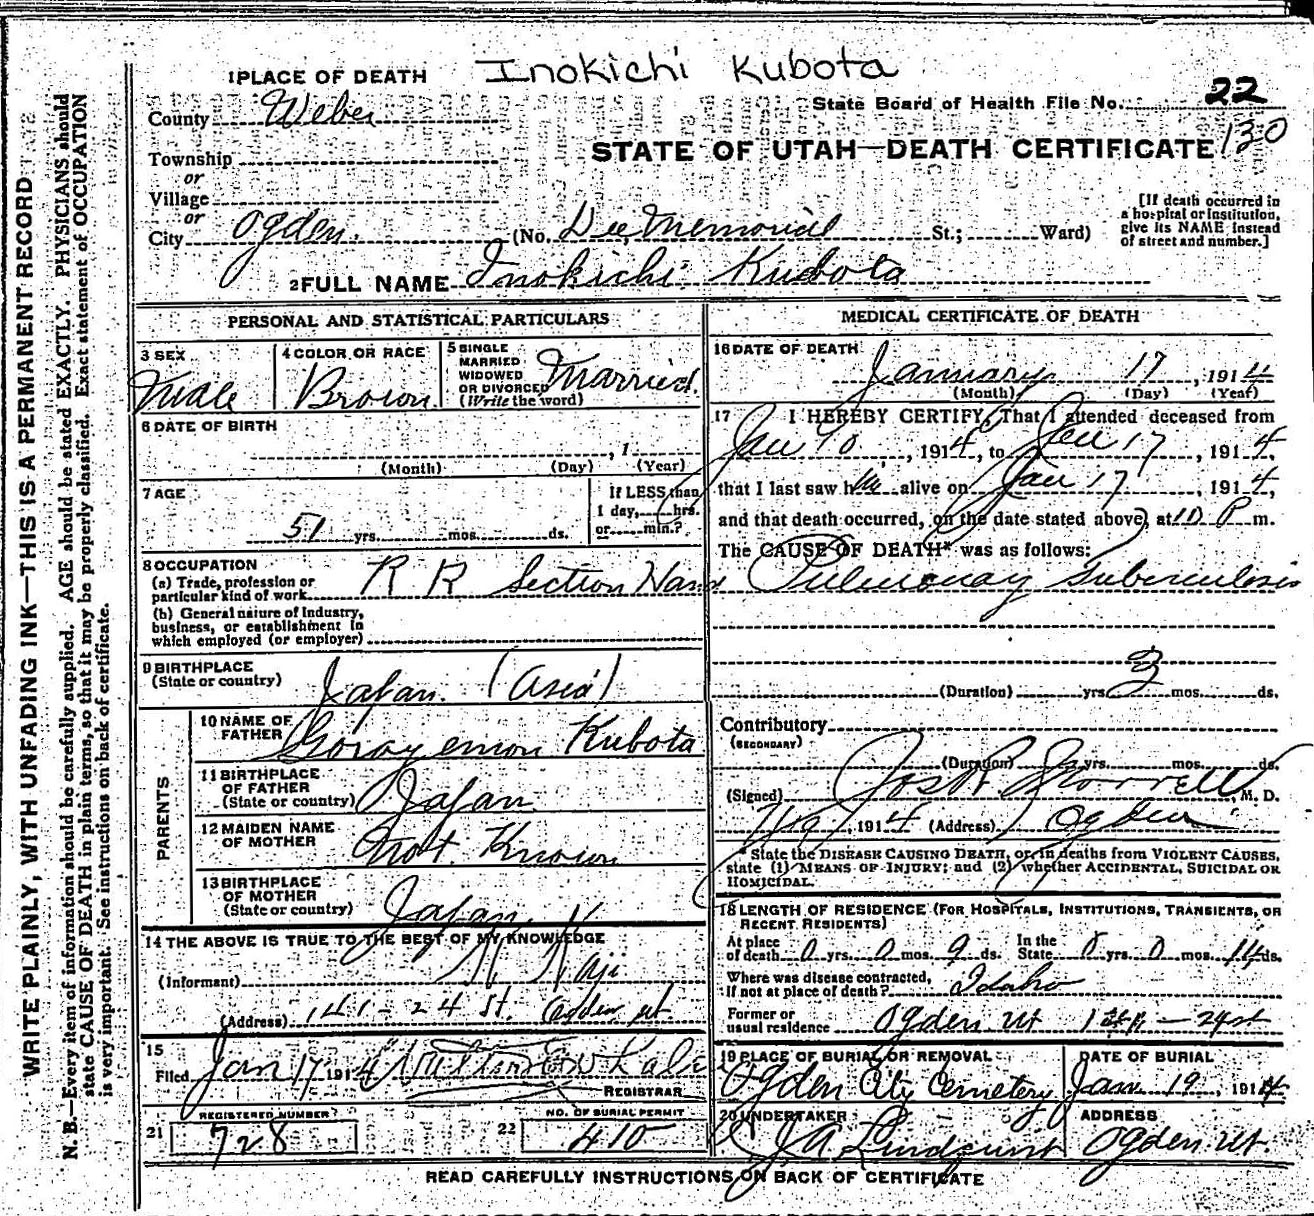 Inokichi Kubota
1 PLACE OF DEATH
State Board of Health File No. 22
130
County Weber
STATE OF UTAH—DEATH CERTIFICATE
Township
or
Village
or
City Ogden. (No. Dee Memorial St.; Ward)
[If death occurred in a hospital or institution, give its NAME instead of street and number.]
2 FULL NAME Inokichi Kubota
PERSONAL AND STATISTICAL PARTICULARS
3 SEX Male
4 COLOR OR RACE Brown
5 SINGLE MARRIED WIDOWED OR DIVORCED (Write the word) Married.
6 DATE OF BIRTH
, 1
(Month) (Day) (Year)
7 AGE
51 yrs. mos. ds.
If LESS than 1 day, hrs. or min.?
8 OCCUPATION
(a) Trade, profession or particular kind of work R R Section Hand
(b) General nature of industry, business, or establishment in which employed (or employer)
9 BIRTHPLACE (State or country) Japan. (Asia)
PARENTS
10 NAME OF FATHER Gorayemon Kubota
11 BIRTHPLACE OF FATHER (State or country) Japan
12 MAIDEN NAME OF MOTHER Not Known
13 BIRTHPLACE OF MOTHER (State or country) Japan.
14 THE ABOVE IS TRUE TO THE BEST OF MY KNOWLEDGE
(Informant) Kaji
(Address) 141-24 St. Ogden ut
15
Filed Jan 17 1914
REGISTRAR
REGISTERED NUMBER
21 728
NO. OF BURIAL PERMIT
22 410
MEDICAL CERTIFICATE OF DEATH
16 DATE OF DEATH
January 17, 1914
(Month) (Day) (Year)
17 I HEREBY CERTIFY, That I attended deceased from
Jan 10, 1914, to Jan 17, 1914,
that I last saw him alive on Jan 17, 1914,
and that death occurred, on the date stated above, at 10 P m.
The CAUSE OF DEATH* was as follows:
Pulmonary Tuberculosis
(Duration) yrs. 3 mos. ds.
Contributory
(SECONDARY)
(Duration) yrs. mos. ds.
(Signed) M. D.
1914 (Address) Ogden
* State the DISEASE CAUSING DEATH, or, in deaths from VIOLENT CAUSES, state (1) MEANS OF INJURY; and (2) whether ACCIDENTAL, SUICIDAL OR HOMICIDAL.
18 LENGTH OF RESIDENCE (FOR HOSPITALS, INSTITUTIONS, TRANSIENTS, OR RECENT RESIDENTS)
At place of death 0 yrs. 0 mos. 9 ds. In the State 0 yrs. 0 mos. 14 ds.
Where was disease contracted, if not at place of death? Idaho
Former or usual residence Ogden Ut
19 PLACE OF BURIAL OR REMOVAL Ogden City Cemetery
DATE OF BURIAL Jan 19, 1914
20 UNDERTAKER J A Lindquist
ADDRESS Ogden Ut.
READ CAREFULLY INSTRUCTIONS ON BACK OF CERTIFICATE
WRITE PLAINLY, WITH UNFADING INK—THIS IS A PERMANENT RECORD
N. B.—Every item of information should be carefully supplied. AGE should be stated EXACTLY. PHYSICIANS should
state CAUSE OF DEATH in plain terms, so that it may be properly classified. Exact statement of OCCUPATION
is very important. See instructions on back of certificate.